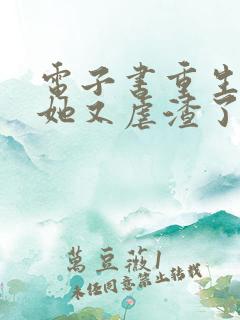 電子書重生
她又虐渣了
萬豆薇1
未經同意禁止轉載